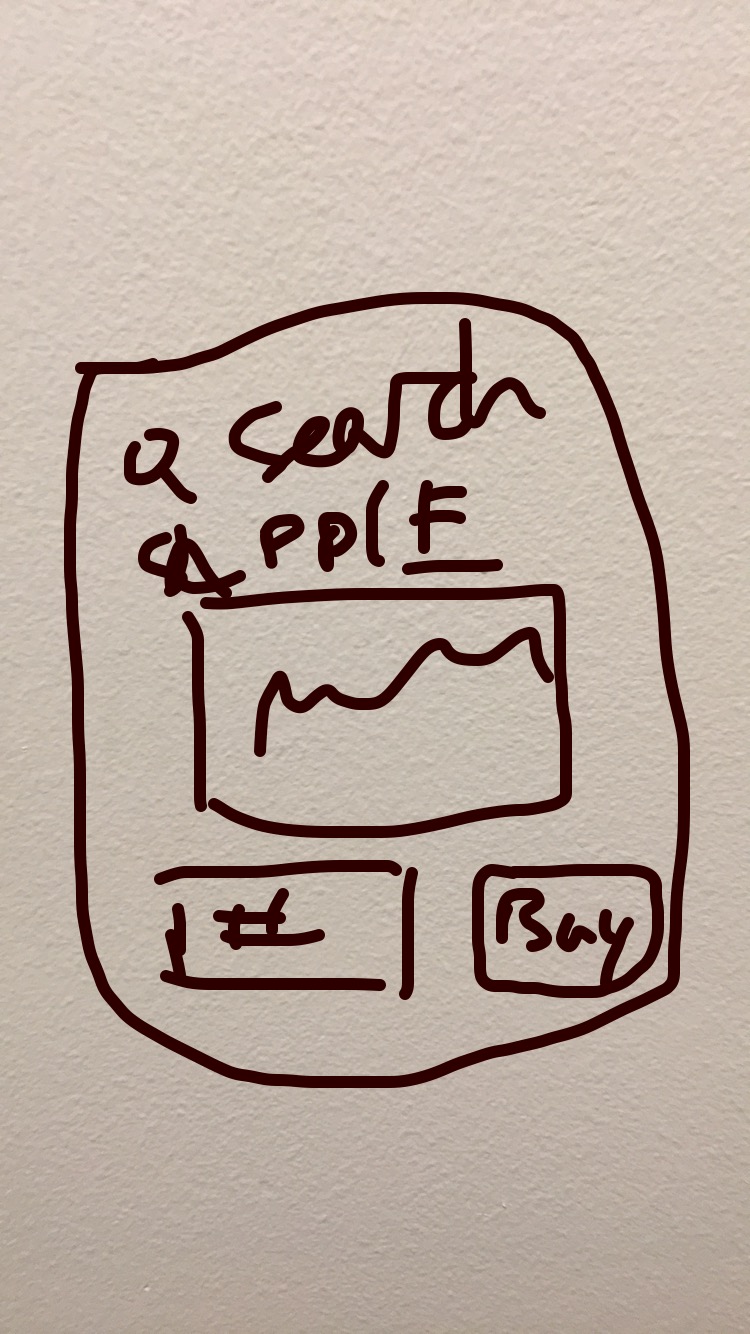 Search
Apple
#
Buy